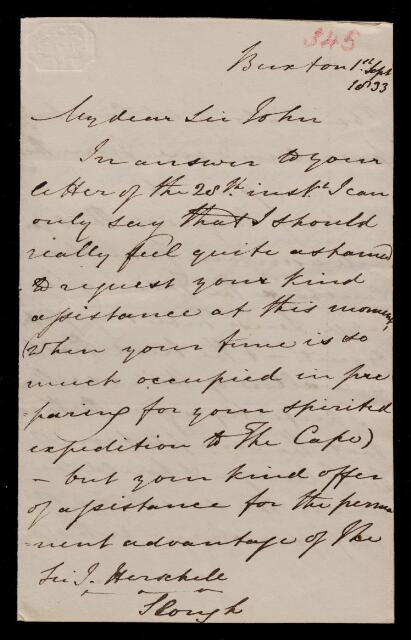 345
Buxton 1st Sept
1833
My dear Sir John
In answer to your
letter of the 28th. inst. I can
only say that I should
really feel quite ashamed
to request your kind
assistance at this moment,
(when your time is so
much occupied in pre
=paring for your spirited
expedition to The Cape)
- but your kind offer
of assistance for the perma
=nent advantage of the
Sir J. Herschell
Slough